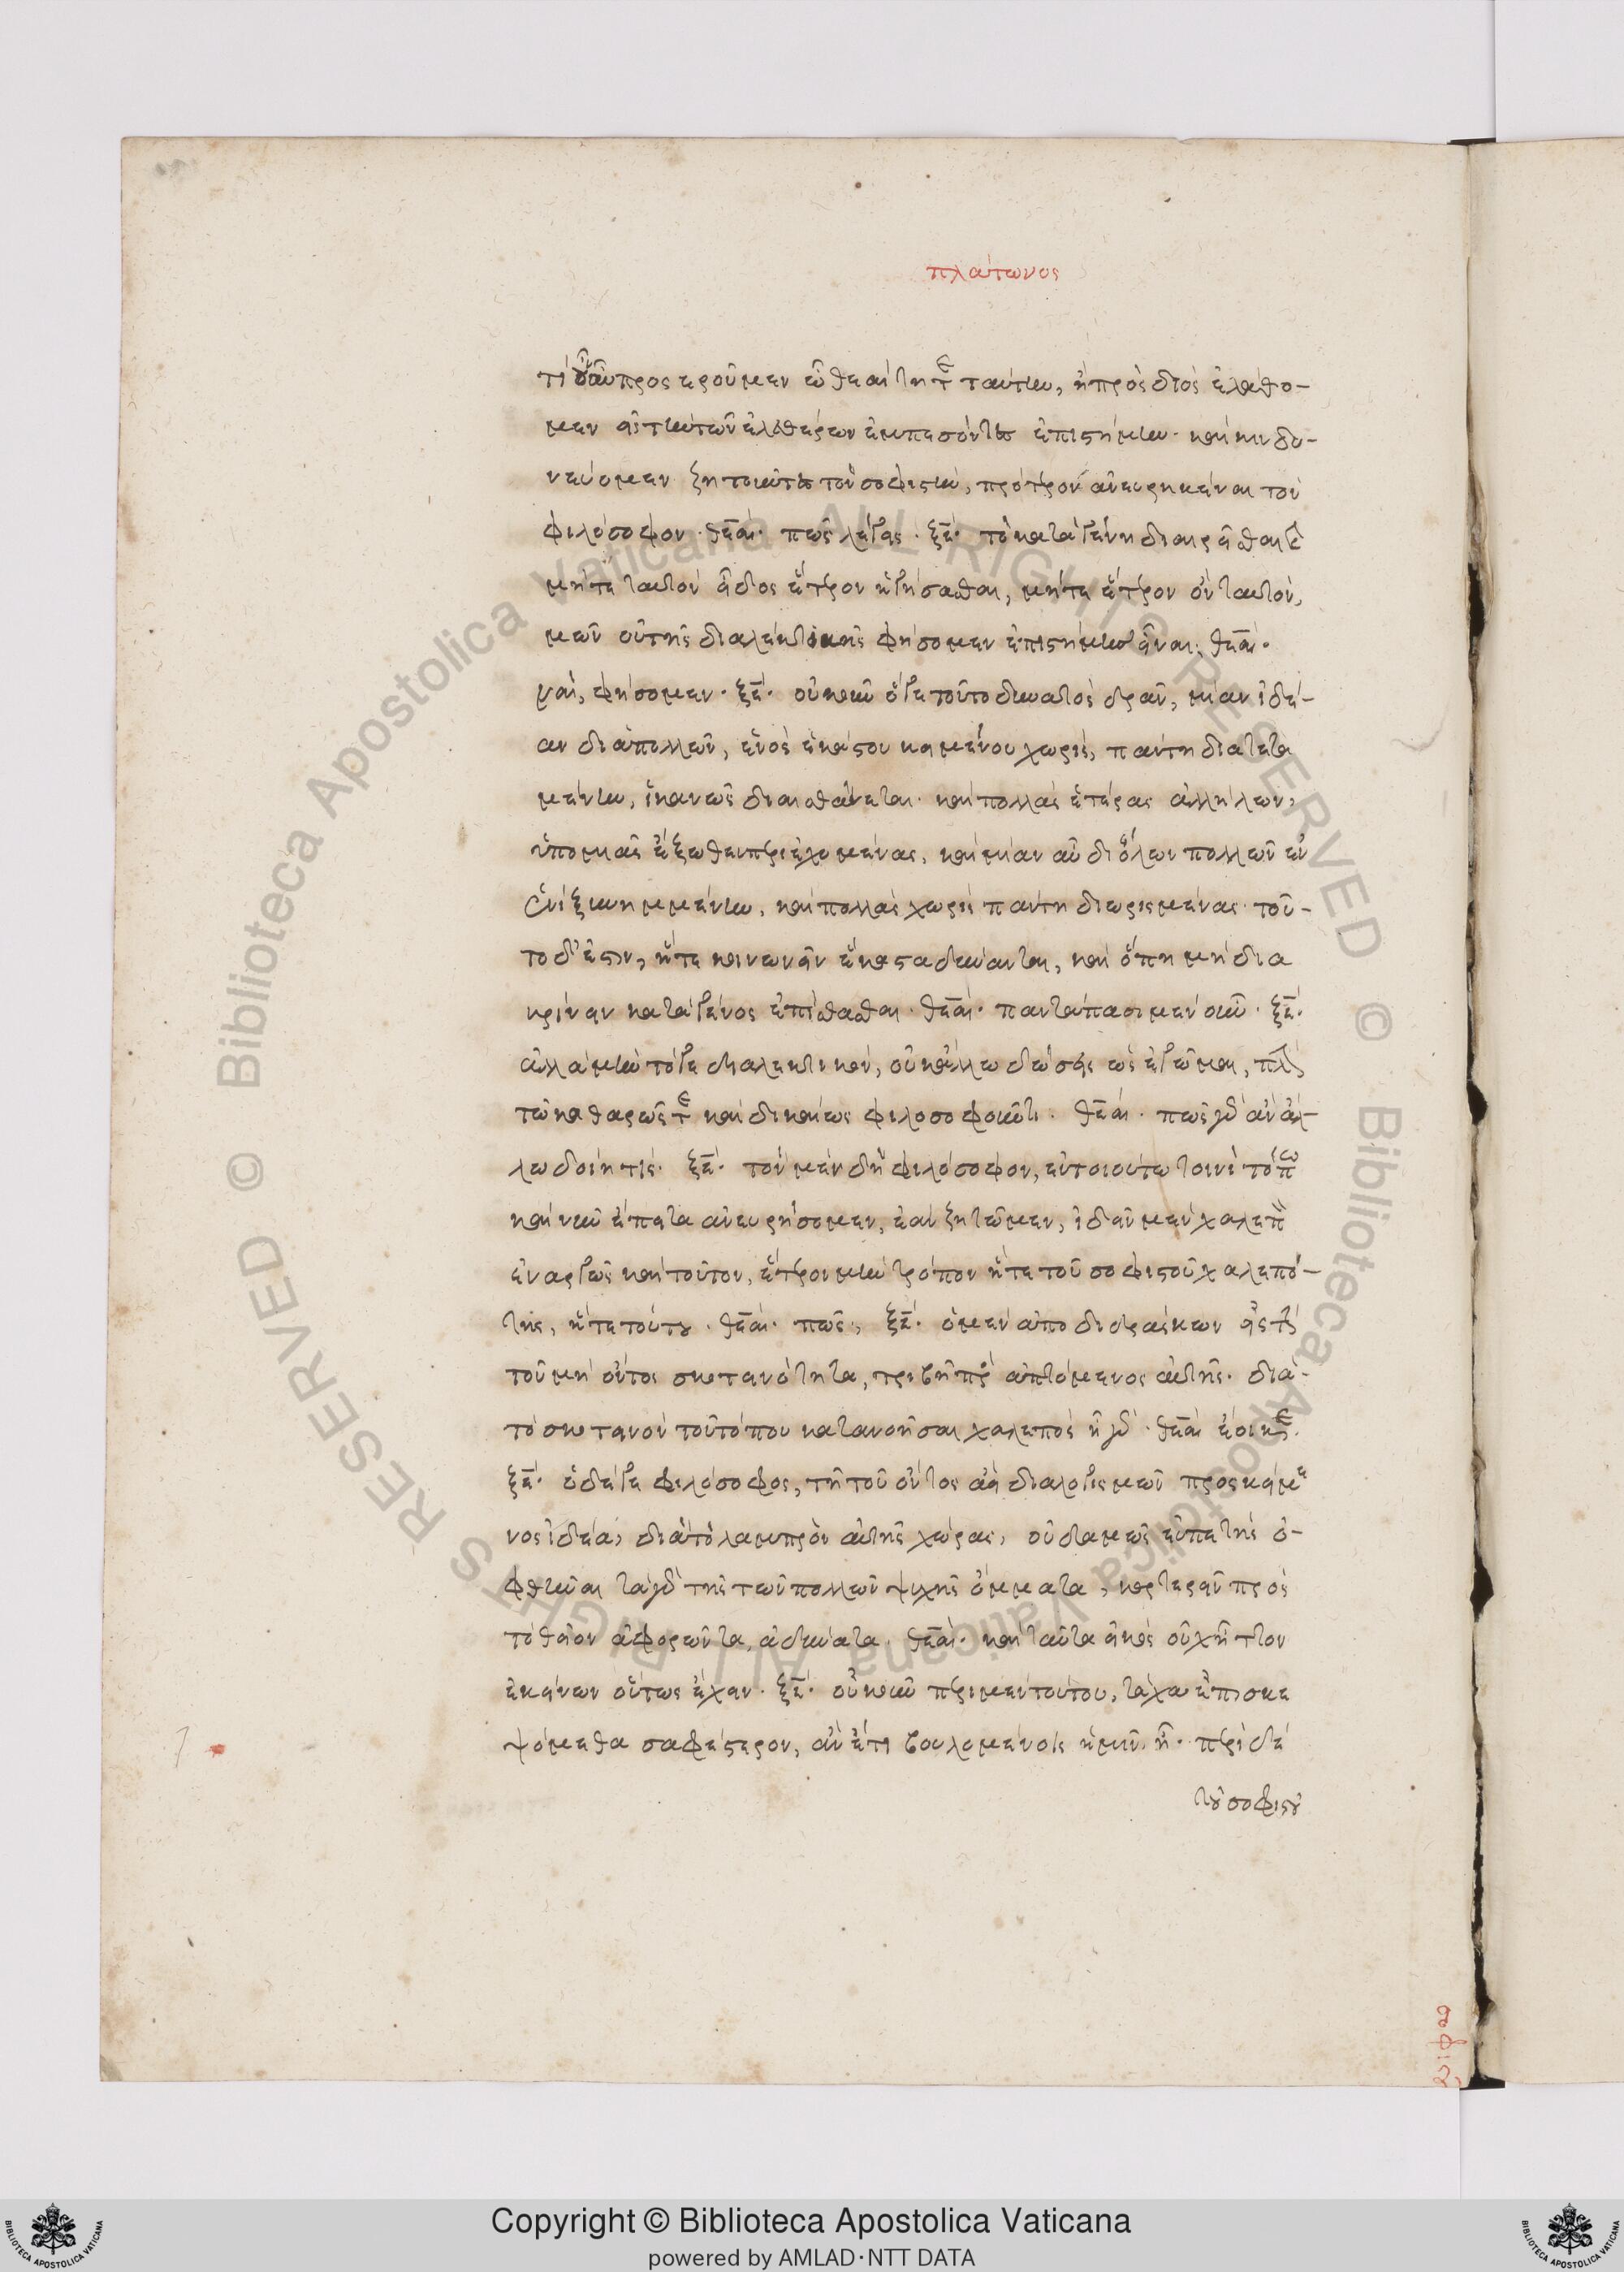 πλάτωνος
τί οὖν αὖ προσεροῦμεν ὦ θεαίτητε ταύτην, ἢ πρὸς διὸς ἐλάθο-
μεν εἰς τὴν τῶν ἐλευθέρων ἐμπεσόντες ἐπιστήμην· καὶ κινδυ-
νεύομεν ζητοῦντες τὸν σοφιστὴν, πρότερον ἀνευρηκέναι τὸν
φιλόσοφον· θεαί· πῶς λέγεις· ξέ· τὸ κατὰ γένη διαιρεῖσθαι καὶ
μήτε ταυτὸν εἶδος ἕτερον ἡγήσασθαι, μήτε ἕτερον ὂν ταυτὸν,
μῶν οὐ τῆς διαλεκτικῆς φήσομεν ἐπιστήμην εἶναι· θεαί·
ναὶ, φήσομεν· ξέ· οὐκοῦν ὅγε τοῦτο δυνατὸς δρᾶν, μίαν ἰδέ-
αν διὰ πολλῶν, ἑνὸς ἑκάστου κειμένου χωρὶς, πάντη διατετα
μένην, ἱκανῶς διαισθάνεται· καὶ πολλὰς ἑτέρας ἀλλήλων,
ὑπὸ μιᾶς ἔξωθεν περιεχομένας, καὶ μίαν αὖ δι' ὅλων πολλῶν ἐν
ἑνὶ ξυνημμένην, καὶ πολλὰς χωρὶς πάντη διωρισμένας· τοῦ-
το δ' ἔστιν, ᾗτε κοινωνεῖν ἕκαστα δύναται, καὶ ὅπη μὴ δια
κρίνειν κατὰ γένος ἐπίστασθαι· θεαί· παντάπασι μὲν οὖν· ξέ·
ἀλλὰ μὴν τόγε διαλεκτικὸν, οὐκ ἄλλω δώσεις ὡς ἐγᾦμαι, πλὴν
τῶ καθαρῶς τε καὶ δικαίως φιλοσοφοῦντι· θεαί· πῶς γὰρ ἂν ἄλ-
λω δοίη τίς· ξέ· τὸν μὲν δὴ φιλόσοφον, ἐν τοιούτω τινὶ τόπω
καὶ νῦν ἔπειτα ἀνευρήσομεν, ἐὰν ζητῶμεν, ἰδεῖν μὲν χαλεπὸν
ἐναργῶς καὶ τοῦτον, ἕτερον μὴν τρόπον ἥτε τοῦ σοφιστοῦ χαλεπό-
της, ἥτε τούτου· θεαί· πῶς, ξέ· ὁ μὲν ἀποδιδράσκων εἰς τὴν
τοῦ μὴ ὄντος σκοτεινότητα, τριβῇ προσαπτόμενος αὐτῆς· διὰ
τὸ σκοτεινὸν τοῦ τόπου κατανοῆσαι χαλεπὸς ἦ γάρ· θεαί ἔοικεν.
ξέ· ὁ δέγε φιλόσοφος, τῇ τοῦ ὄντος ἀεὶ διαλογισμῶν προσκείμε
νος ἰδέα, διὰ τὸ λαμπρὸν αὐτῆς χώρας, οὐδαμῶς εὐπετὴς ὀ-
φθῆναι τὰ γὰρ τῆς τῶν πολλῶν ψυχῆς ὄμματα, καρτερεῖν πρὸς
τὸ θεῖον ἀφορῶντα, ἀδύνατα· θεαί· καὶ ταῦτα εἰκὸς οὐχ ἧττον
ἐκείνων οὕτως ἔχειν· ξέ· οὐκοῦν περὶ μὲν τούτου, τάχα ἐπισκε
ψόμεθα σαφέστερον, ἂν ἔτι βουλομένοις ἡμῖν ᾖ· περὶ δὲ
τοῦ σοφιστοῦ